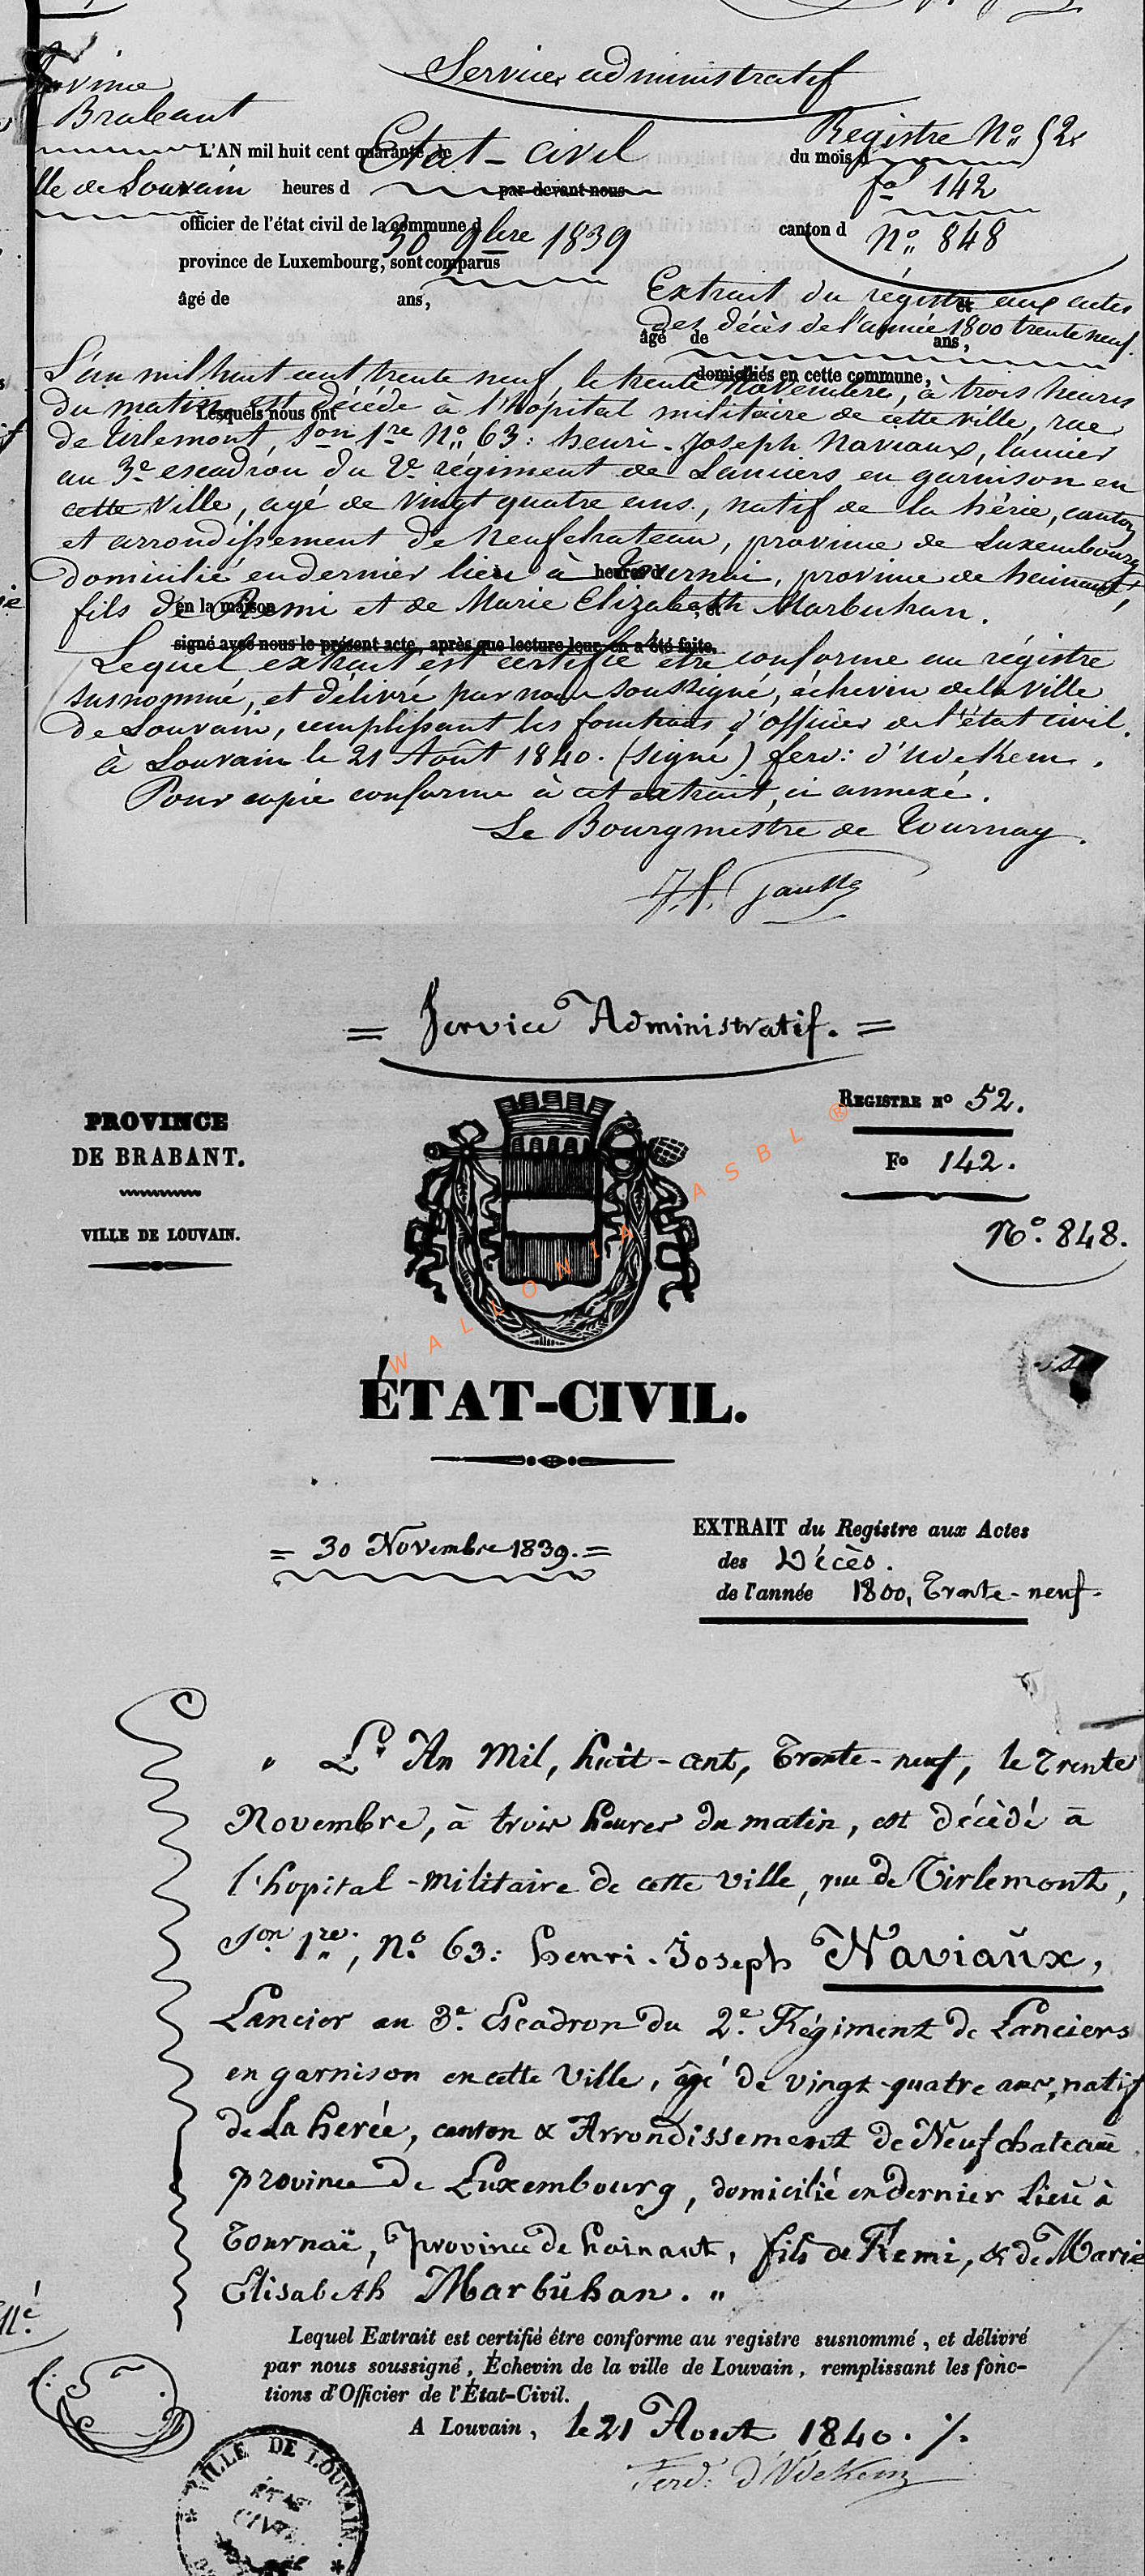 Service administratif
Province
Brabant
Registre N° 52
L'AN mil huit cent quarante, le
Etat-civil
du mois d
lle de Louvain
heures d
par-devant nous
f° 142
officier de l'état civil de la commune d
30 9bre 1839
canton d
N° 848
province de Luxembourg, sont comparus
âgé de
ans,
et
Extrait du régistre aux actes
des décès de l'année 1800 trente neuf.
âgé de
ans,
domiciliés en cette commune,
L'an mil huit cent trente neuf, le trente Novembre, à trois heures
Lesquels nous ont
du matin, est décédé à l'hôpital militaire de cette ville, rue
de Tirlemont, Son 1re N° 63: henri-Joseph Naviaux, lancier
au 3e escadron du 2e régiment de Lanciers en garnison en
cette Ville, agé de vingt quatre ans, natif de la hérie, canton
et arrondissement de Neufchateau, province de Luxembourg
domicilié en dernier lieu à Tournai, province de hainaut,
heures d
fils de Remi et de Marie Elizabeth Marbuhan.
en la maison
signé avec nous le présent acte, après que lecture leur en a été faite.
Lequel extrait est certifié être conforme au régistre
susnommé, et délivré par nous soussigné, échevin de la Ville
de Louvain, remplissant les fonctions d'officier de l'état civil.
à Louvain le 21 Août 1840. (signé) ferd: d'Udekem.
Pour copie conforme à cet extrait, ci annexé.
Le Bourgmestre de Tournay.
= Service Administratif. =
REGISTRE N° 52.
PROVINCE
DE BRABANT.
F° 142.
VILLE DE LOUVAIN.
N° 848.
WALLONIA ASBL ®
ÉTAT-CIVIL.
= 30 Novembre 1839. =
EXTRAIT du Registre aux Actes
des Décès.
de l'année 1800, Trente-neuf.
" L'An Mil, huit-cent, Trente-neuf, le Trente
Novembre, à trois heures du matin, est décèdé à
l'hopital-militaire de cette ville, rue de Tirlemont,
Son 1re, N° 63: henri-Joseph Naviaux,
Lancier au 3e Escadron du 2e Régiment de Lanciers
en garnison en cette Ville, âgé de vingt-quatre ans, natif
de La herée, canton & Arrondissement de Neufchateau
province de Luxembourg, domicilié en dernier lieu à
Tournaï, province de hainaut, fils de Remi, & de Marie
Elisabeth Marbuhan. "
Lequel Extrait est certifié être conforme au registre susnommé, et délivré
par nous soussigné, Échevin de la ville de Louvain, remplissant les fonc-
tions d'Officier de l'État-Civil.
A Louvain, le 21 Aout 1840. %.
Ferd. d'Udekem
VILLE DE LOUVAIN
ETAT
CIVIL